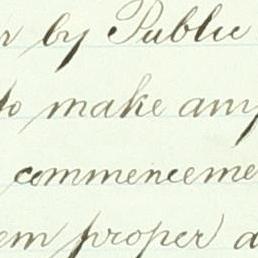 by Public
to make any
commenceme
em proper a